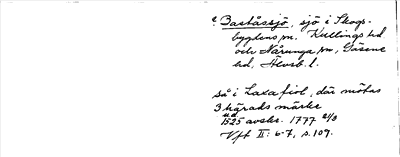 Baståssjö, sjö i Skogs-
bygdens sn. Kullings hd
och Nårunga sn, Gäsene
hd, Älvsb. l.
så i Laxa fiol, där mötas
3 härads märke
1525 avskr. 1777
Vft II: 6-7, s. 109.